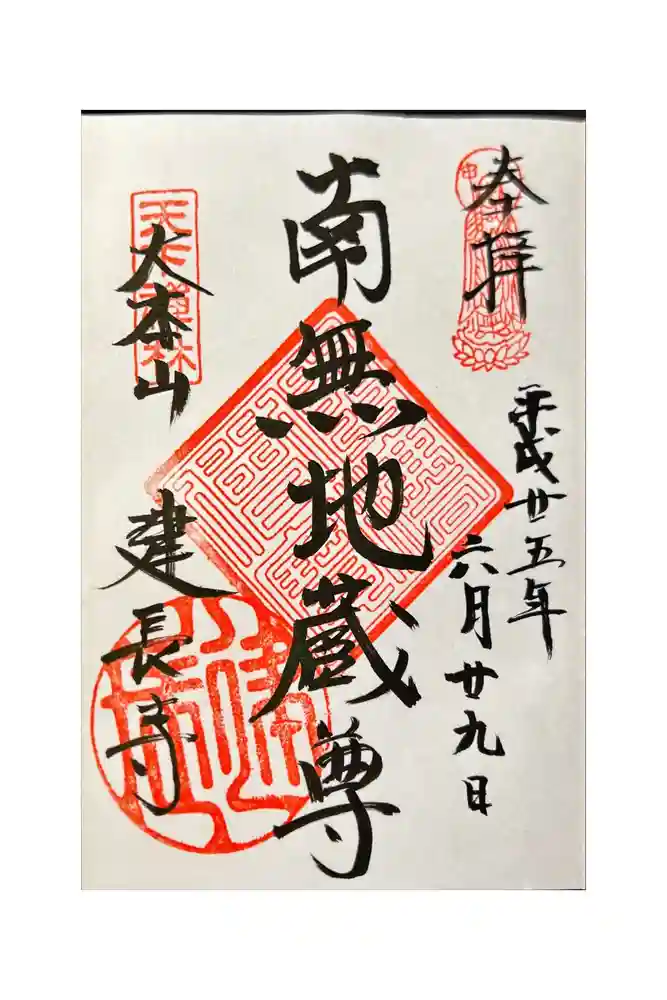 奉拝
平成廿五年
六月廿九日
南無地蔵尊
天下禅林
大本山
建長寺